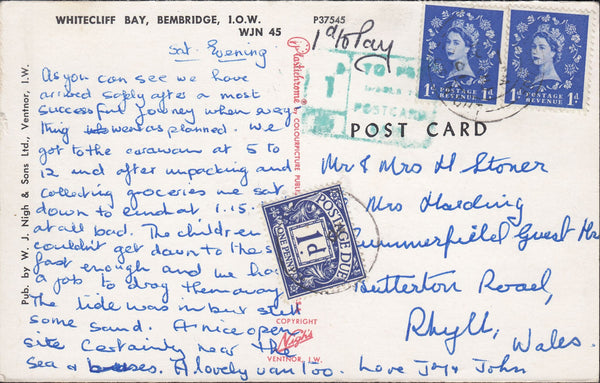 WHITECLIFF BAY, BEMBRIDGE, I.O.W.
WJN 45
P37545
1d to Pay
TO PAY
POSTCARD
POSTAGE REVENUE
1D 1D
POSTAGE REVENUE
1D 1D
POST CARD
Sat. Evening
As you can see we have
arrived safely after a most
successful journey when every
thing went as planned. We
got to the caravan at 5 to
12 and after unpacking and
collecting groceries we sat
down to eat at 1.15. Not
at all bad. The children
couldn't get down to the sea
fast enough and we had
a job to drag them away.
The tide was in but still
some sand. A nice open
site certainly near the
sea & buses. A lovely van too. Love Joy & John
Mr & Mrs H Stoner
Mrs Harding
Summerfield Guest Hse
Butterton Road,
Rhyll,
Wales.
POSTAGE DUE
1d.
ONE PENNY
Pub. by W. J. Nigh & Sons Ltd., Ventnor, I.W.
Plastichrome ® by COLOURPICTURE PUBL
COPYRIGHT
Nigh's
VENTNOR, I.W.